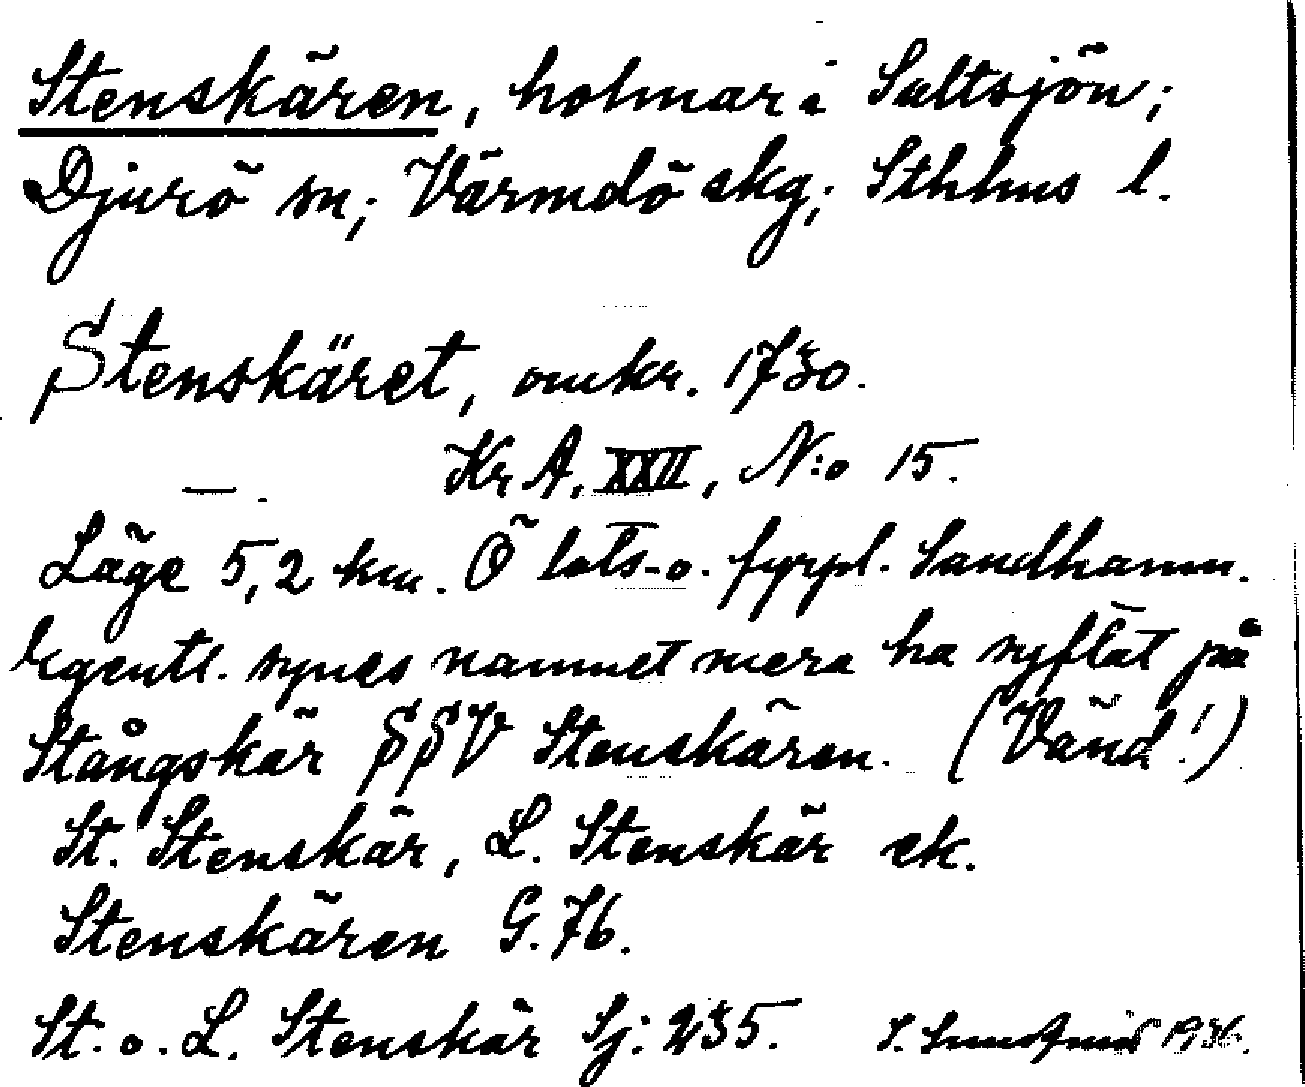 Stenskären, holmar i Saltsjön;
Djurö sn; Värmdö skg; Sthlms l.
Stenskäret, omkr. 1730.
— . Kr A, XXII, N:o 15.
Läge 5,2 km. Ö lots- o. fyrpl. Sandhamn.
Egentl. synes namnet mera ha syftat på
Stångskär SSV Stenskären. (Vänd!)
St. Stenskär, L. Stenskär ek.
Stenskären G. 76.
St. o. L. Stenskär Sj: 235. 1936.